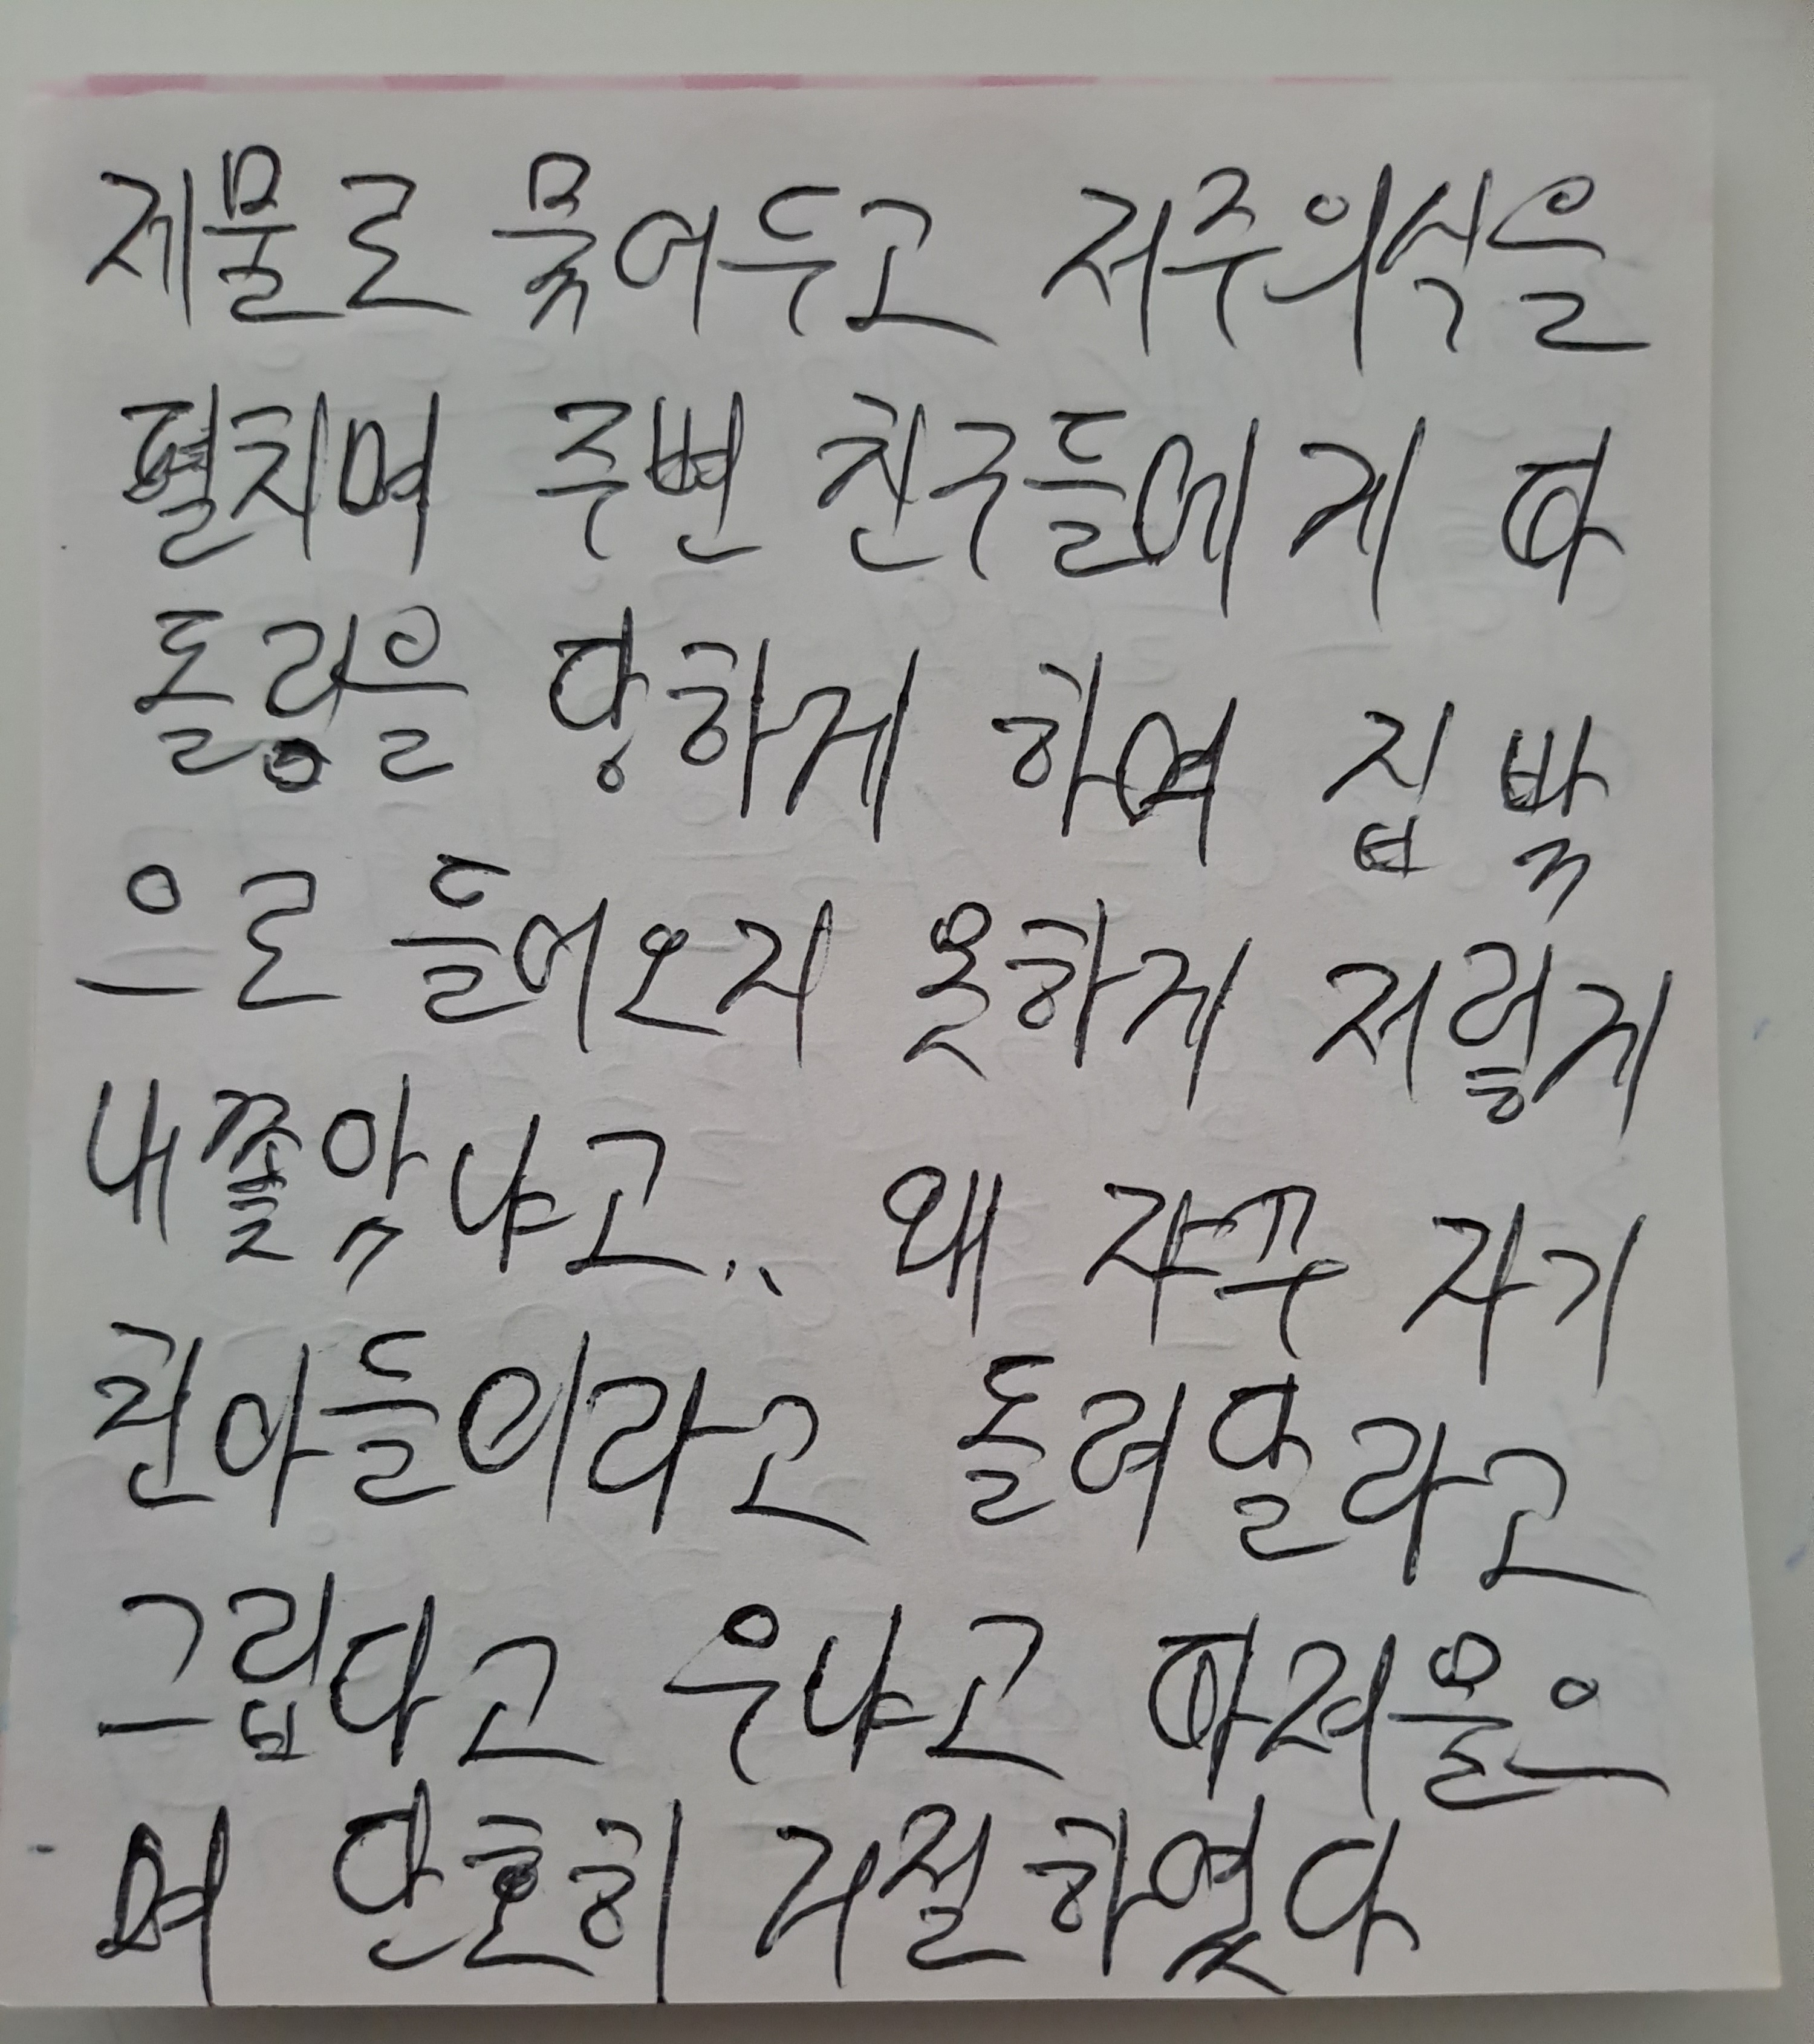 제물로 묶어두고 저주의식을
펼치며 주변 친구들에게 따
돌림을 당하게 하여 집 밖
으로 들어오지 못하게 저렇게
내쫓았냐고.. 왜 자꾸 자기
친아들이라고 돌려달라고
그립다고 우냐고 따져물으
며 단호히 거절하였다